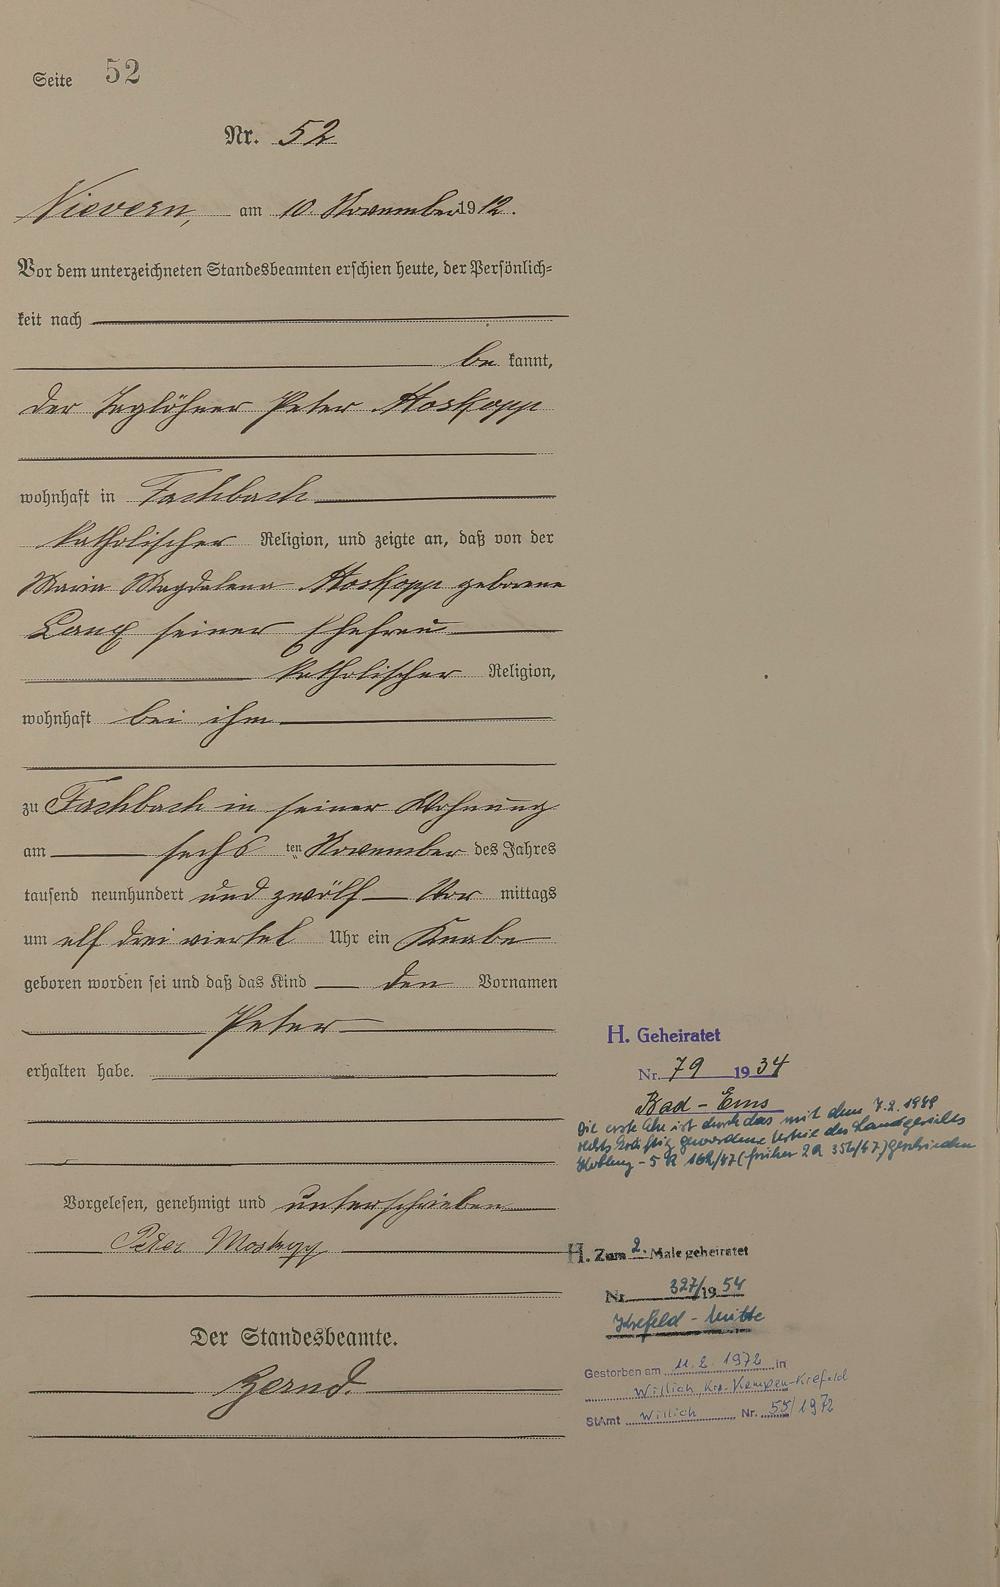 Seite 52
Nr. 52
Nievern, am 10. November 1912.
Vor dem unterzeichneten Standesbeamten erschien heute, der Persönlich=
keit nach
be kannt,
der Taglöhner Peter Moskopp
wohnhaft in Fachbach
katholischer Religion, und zeigte an, daß von der
Maria Magdalena Moskopp geborene
seiner Ehefrau
katholischer Religion,
wohnhaft bei ihm
zu Fachbach in seiner Wohnung
am sechs ten November des Jahres
tausend neunhundert und zwölf Vor mittags
um elf drei viertel Uhr ein Knabe
geboren worden sei und daß das Kind den Vornamen
Peter
erhalten habe.
Vorgelesen, genehmigt und unterschrieben
Peter Moskopp
Der Standesbeamte.
H. Geheiratet
Nr. 79 1934
Bad-Ems
Die erste Ehe ist durch das mit dem 7.2.
rechtskräftig gewordene Urteil des Landgerichts
Koblenz - 5 R (früher 2 R 356/47) geschieden
H. Zum 2. Male geheiratet
Nr. 327/1954
Krefeld-Mitte
Gestorben am 11.2.1972 in
Willich, Krs. Kempen-Krefeld
StAmt Willich Nr. 55/1972